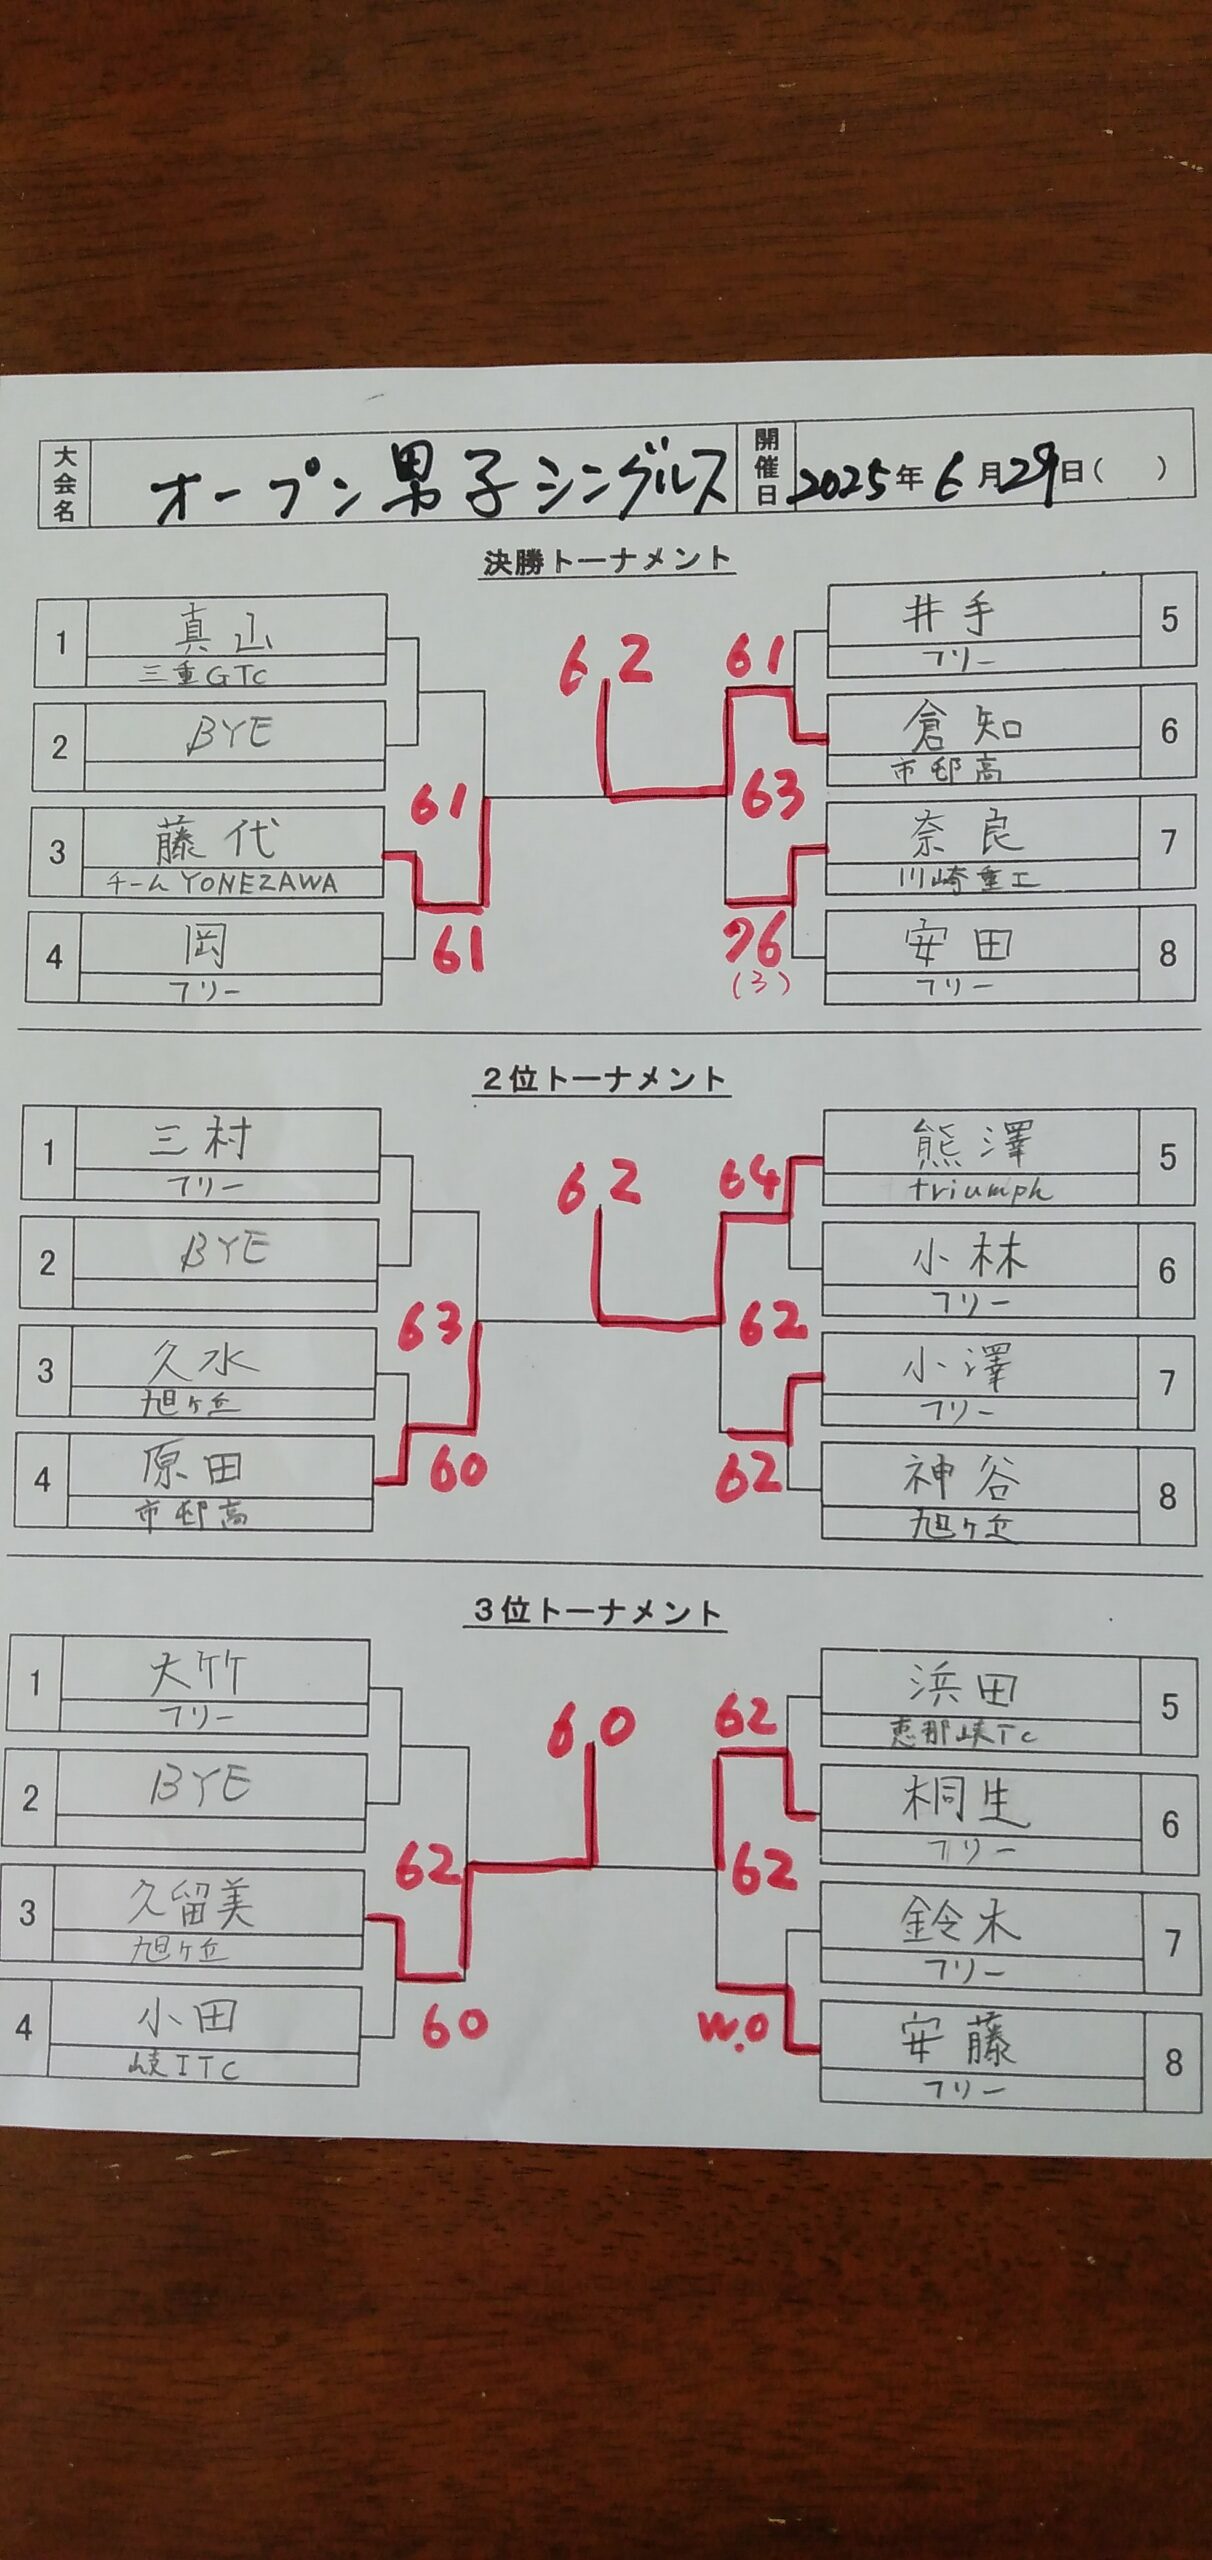 大会名 オープン男子シングルス 開催日 2025年6月29日( )
決勝トーナメント
1 真山
三重GTC
2 BYE
3 藤代
チームYONEZAWA
4 岡
フリー
61
61
62
61
63
76
(3)
井手 5
フリー
倉知 6
市邨高
奈良 7
川崎重工
安田 8
フリー
2位トーナメント
1 三村
フリー
2 BYE
3 久水
旭ヶ丘
4 原田
市邨高
63
60
62
64
62
62
熊澤 5
triumph
小林 6
フリー
小澤 7
フリー
神谷 8
旭ヶ丘
3位トーナメント
1 大竹
フリー
2 BYE
3 久留美
旭ヶ丘
4 小田
岐ITC
62
60
60
62
62
W.O
浜田 5
恵那峡TC
桐生 6
フリー
鈴木 7
フリー
安藤 8
フリー